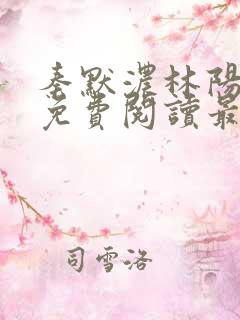 秦默濃林陽
免費閱讀最
司雪洛